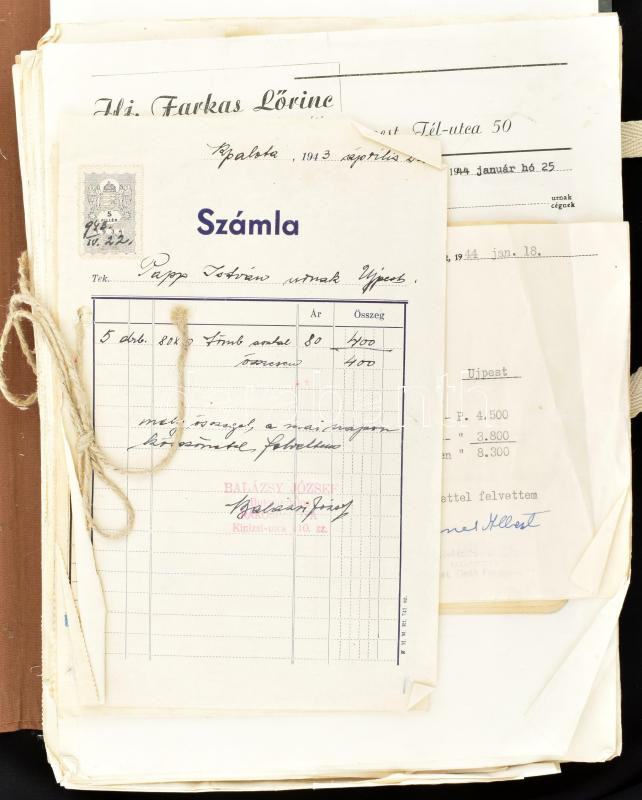 Ifj. Farkas Lőrinc
Tél-utca 50
1944 január hó 25
urnak
cégnek
Rpalota, 1943 április
5
FILLÉR
943
IV. 22.
Számla
Tek. Papp István urnak Ujpest.
Ár Összeg
5 drb. 80x Tömb asztal 80 400
összesen 400
mely összeget, a mai napon
köszönettel felvettem
BALÁZSY JÓZSEF
Balázsi József
Kinizsi-utca 10. sz.
, 1944 jan. 18.
Ujpest
P. 4.500
" 3.800
" 8.300
ettel felvettem
Albert